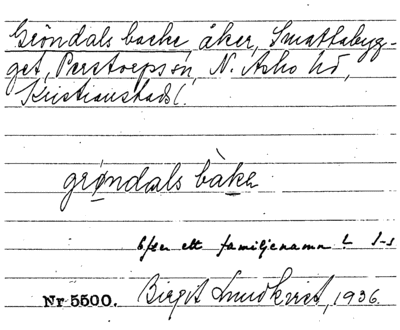 Gröndals backe åker, Smattabyg-
get, Perstorps sn, N. Åsbo hd,
Kristianstads l.
grøndals bàkə
Efter ett familjenamn?
Nr 5500. Birgit Lundkvist, 1936.